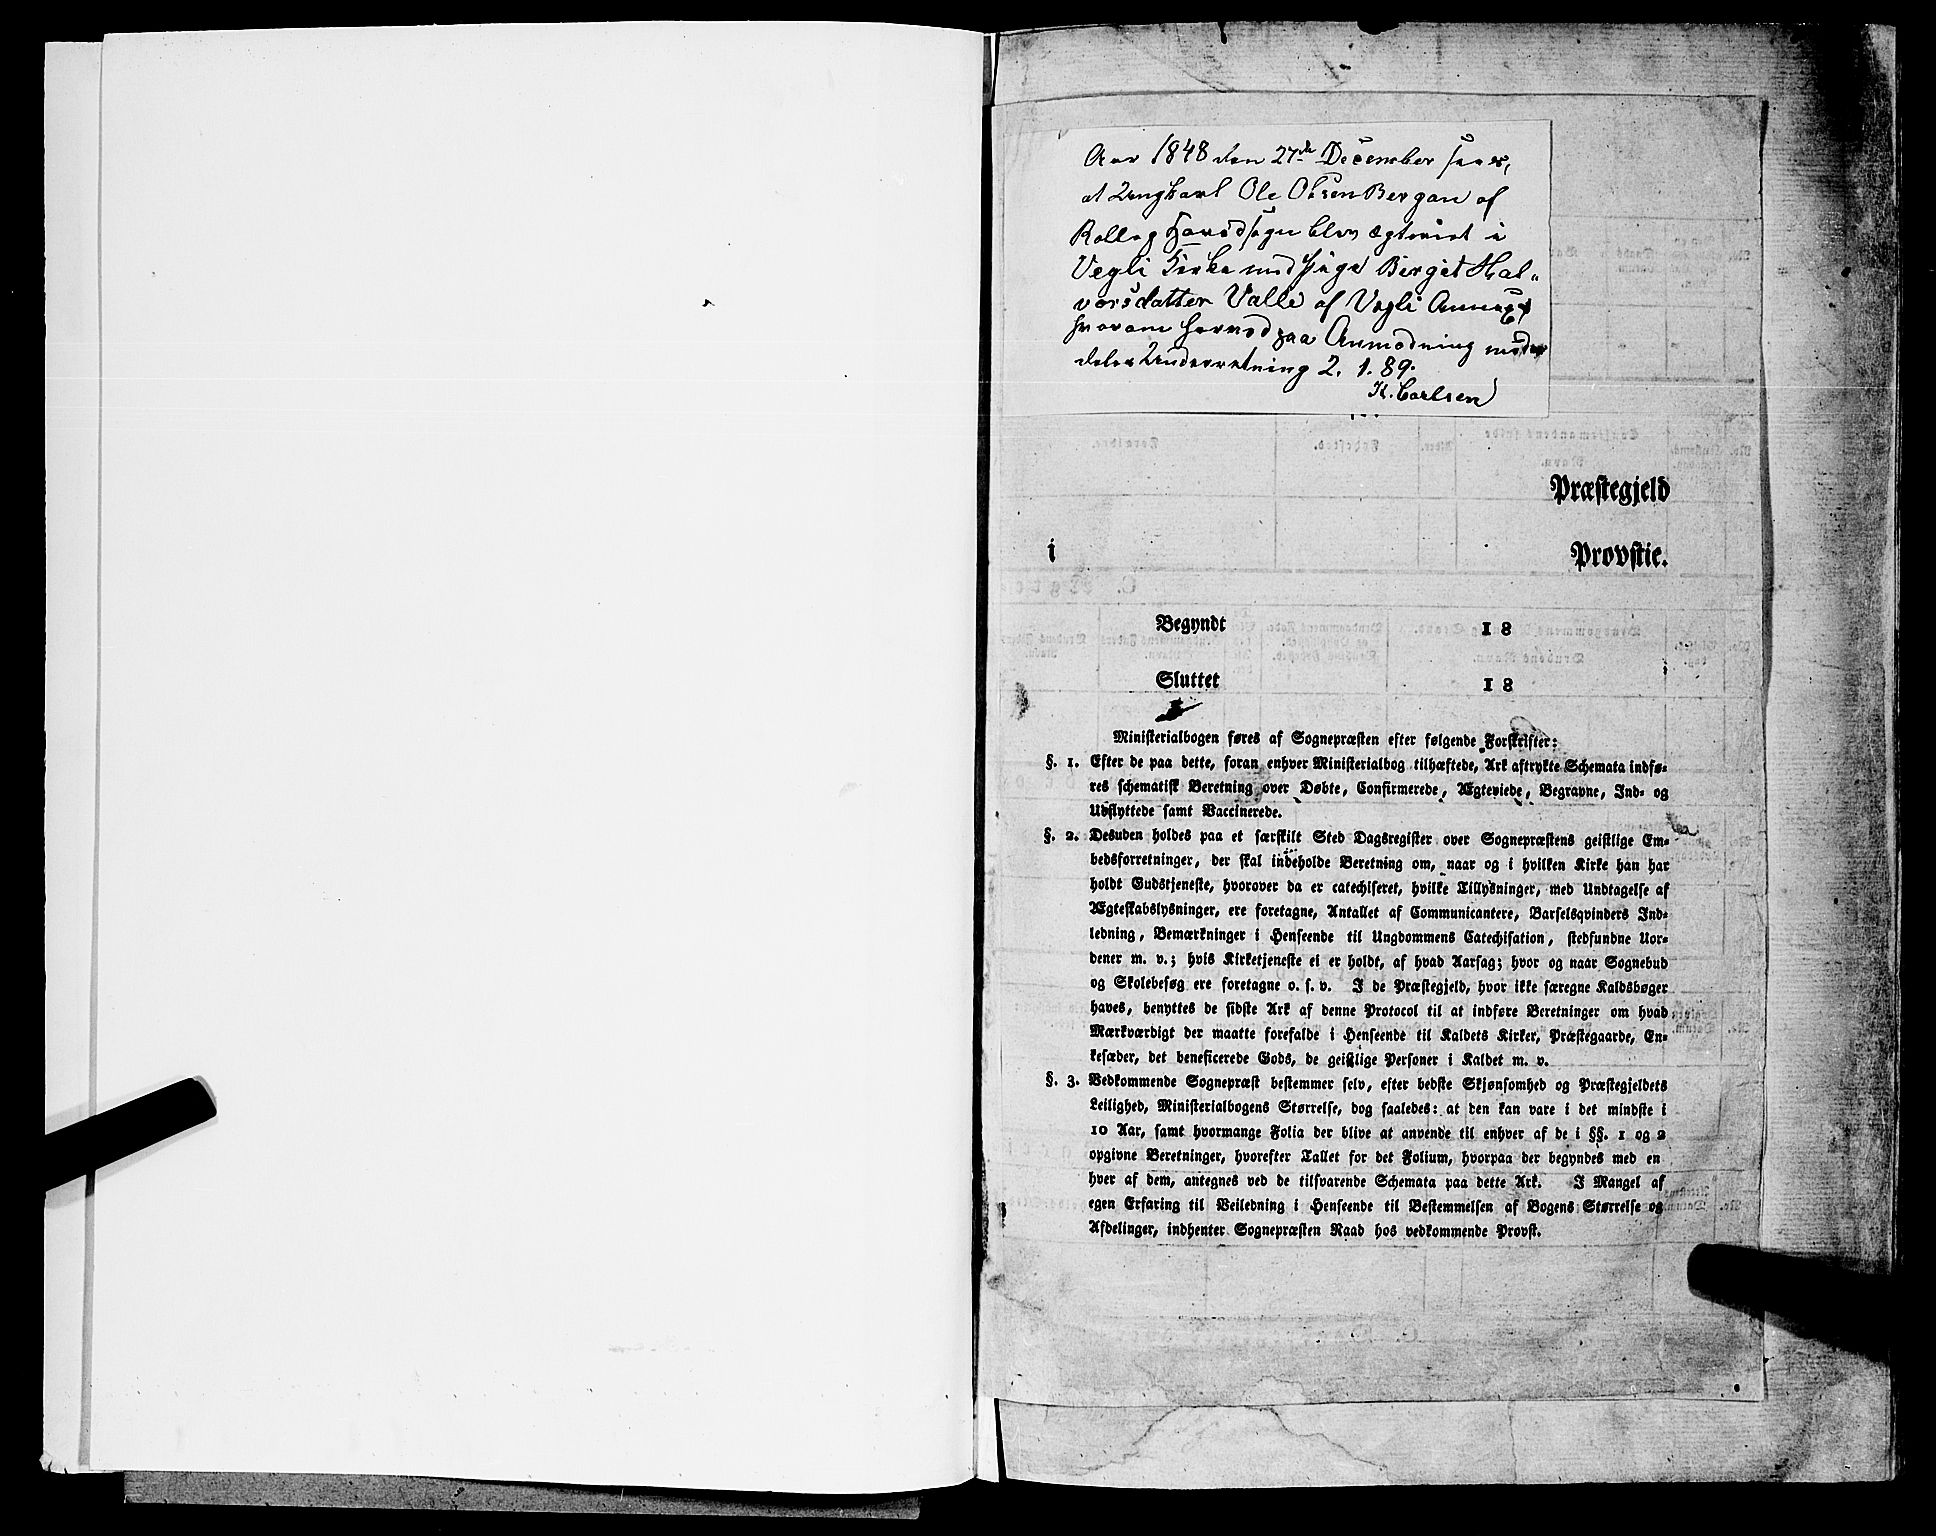 Aar 1848 den 27de December sees,
at Ungkarl Ole Olsen Bergan af
Rollag Hovedsogn blev ægteviet i
Vegli Kirke med Pige Berget Hal-
vorsdatter Valle af Vegli Annex,
hvorom herved paa Anmodning med-
deles Underretning 2. 1. 89.
K. Carlsen
Præstegjeld
i Provstie.
Begyndt 18
Sluttet 18
Ministerialbogen føres af Sognepræsten efter følgende Forskrifter:
§. 1. Efter de paa dette, foran enhver Ministerialbog tilhæftede, Ark aftrykte Schemata indfø-
res schematisk Beretning over Døbte, Confirmerede, Ægteviede, Begravne, Ind- og
Udflyttede samt Vaccinerede.
§. 2. Desuden holdes paa et særskilt Sted Dagsregister over Sognepræstens geistlige Em-
bedsforretninger, der skal indeholde Beretning om, naar og i hvilken Kirke han har
holdt Gudstjeneste, hvorover da er catechiseret, hvilke Tillysninger, med Undtagelse af
Ægteskabslysninger, ere foretagne, Antallet af Communicantere, Barselqvinders Ind-
ledning, Bemærkninger i Henseende til Ungdommens Catechisation, stedfundne Uor-
dener m. v.; hvis Kirketjeneste ei er holdt, af hvad Aarsag; hvor og naar Sognebud
og Skolebesøg ere foretagne o. s. v. I de Præstegjeld, hvor ikke særegne Kaldsbøger
haves, benyttes de sidste Ark af denne Protocol til at indføre Beretninger om hvad
Mærkværdigt der maatte forefalde i Henseende til Kaldets Kirker, Præstegaarde, En-
kesæder, det beneficerede Gods, de geistlige Personer i Kaldet m. v.
§. 3. Vedkommende Sognepræst bestemmer selv, efter bedste Skjønsomhed og Præstegjeldets
Leilighed, Ministerialbogens Størrelse, dog saaledes: at den kan vare i det mindste i
10 Aar, samt hvormange Folia der blive at anvende til enhver af de i §§. 1 og 2
opgivne Beretninger, hvorefter Tallet for det Folium, hvorpaa der begyndes med en
hver af dem, antegnes ved de tilsvarende Schemata paa dette Ark. I Mangel af
egen Erfaring til Veiledning i Henseende til Bestemmelsen af Bogens Størrelse og
Afdelinger, indhenter Sognepræsten Raad hos vedkommende Provst.